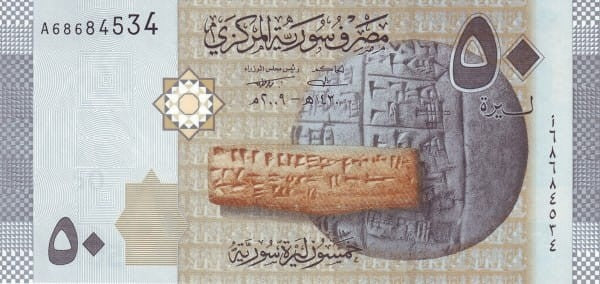 A68684534
مصرف سورية المركزي
٥٠
ليرة
الحاكم
رئيس مجلس الوزراء
٢٠٠٩م - ١٤٣٠هـ
أ٦٨٦٨٤٥٣٤
٥٠
خمسون ليرة سورية